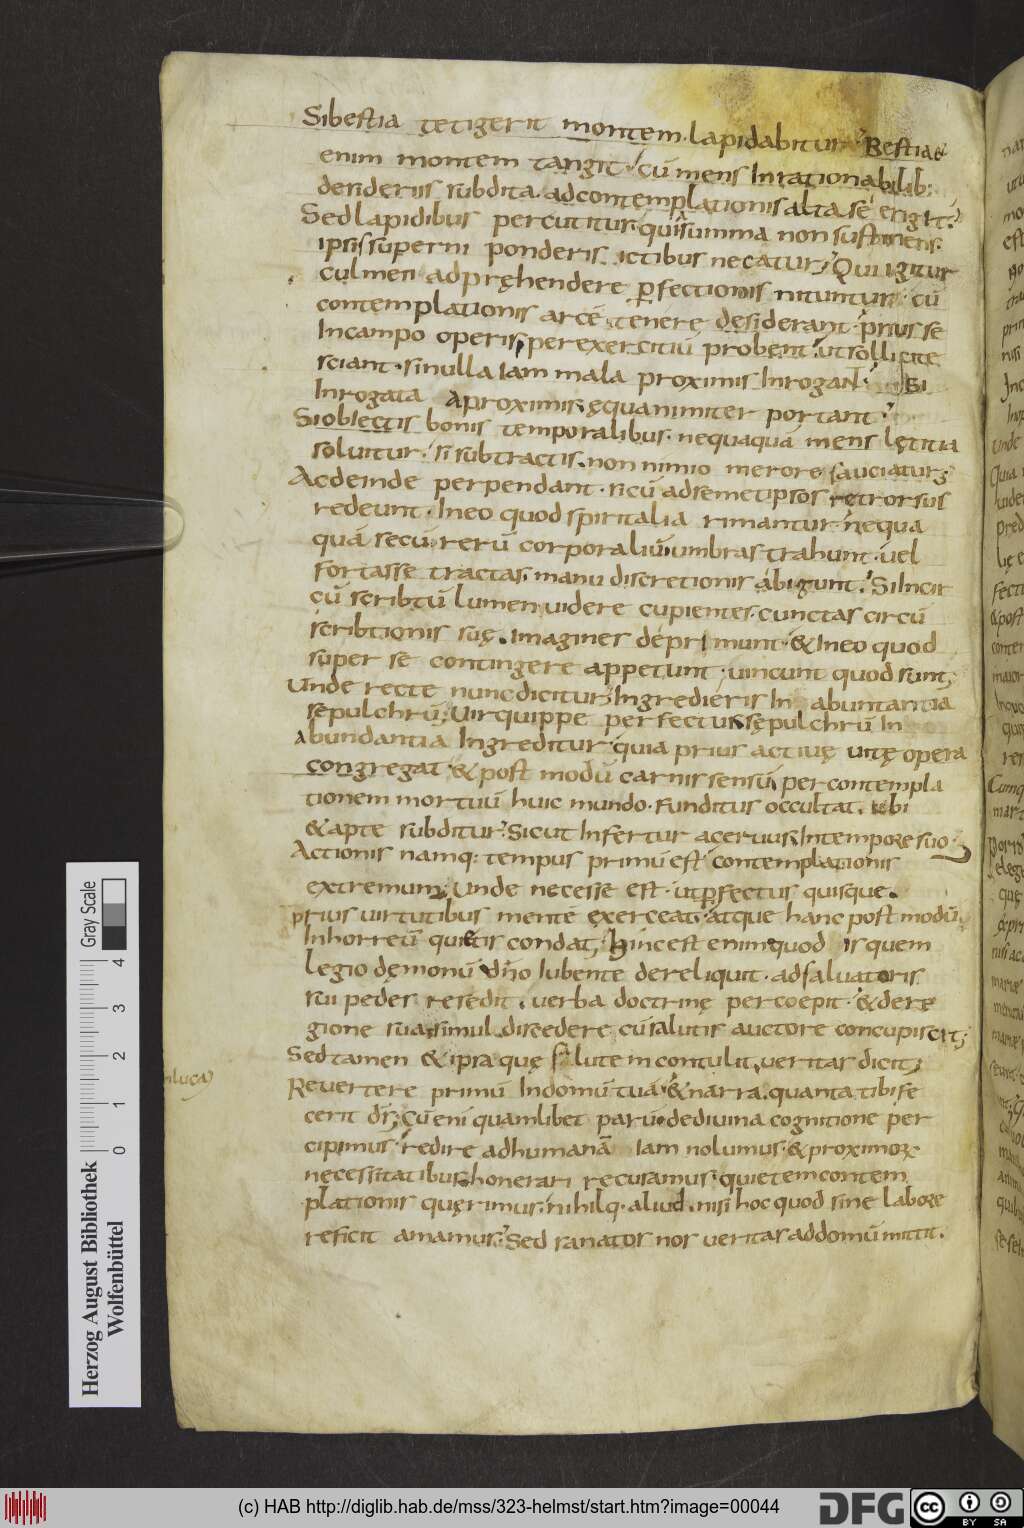 Si bestia tetigerit montem. lapidabitur; Bestia &
enim montem tangit. cū mens Inrationabilib;
desideriis subdita. adcontemplationis alta se erigit;
Sed lapidibus percutitur. qui summa non sustinens.
ipsis superni ponderis ictibus necatur; Qui igitur
culmen adpręhendere ꝑfectionis nituntur. cū
contemplationis arcē tenere desiderant. prius se
Incampo operis; per exercitiū probent. ut sollicite
sciant. si nulla Iam mala proximis Inrogant. si
Inrogata a proximis; ęquanimiter portant.
Si obiectis bonis temporalibus. nequaquā mens lętitia
soluitur. si subtractis. non nimio merore sauciatur;
Ac deinde perpendant. si cū ad semetipsos retrorsus
redeunt. In eo quod spiritalia rimantur. nequa
quā secū rerū corporaliū umbras trahunt. uel
fortasse tractas. manu discretionis abigunt. Si Incir
cū scribtū lumen uidere cupientes. cunctas circū
scribtionis suę. Imagines deprimunt. & In eo quod
super se contingere appetunt. uincunt quod sunt;
Unde recte nunc dicitur; Ingredieris In abuntantia
sepulchrū; Uir quippe perfectus sępulchrū In
abundantia Ingreditur. quia prius actiuę uitę opera
congregat. & post modū carnis sensū per contempla
tionem mortuū huic mundo. funditus occultat. ubi
& apte subditur. Sicut Infertur aceruus In tempore suo.
Actionis namq: tempus primū est contemplationis
extremum; Unde necesse est. ut ꝑfectus quisque.
prius uirtutibus mente exerceat. atque hanc post modū.
In horreū quietis condat; Hinc est enim quod is quem
legio dęmonū dn̄o Iubente dereliquit. ad saluatoris
sui pedes resedit. uerba doctrinę percoepit. & de re
gione sua simul discedere cū salutis auctore concupiscit;
Sed tamen & ipsa quę salutem contulit, ueritas dicit;
Revertere primū In domū tuā. & narra. quanta tibi fe
cerit ds̄; Cū eni quamlibet parū de diuina cognitione per
cipimus. redire ad humanā Iam nolumus. & proximorum
necessitatibus honerari recusamus. quietem contem
plationis quęrimus. nihilq. aliud. nisi hoc quod sine labore
reficit amamus. Sed sanatos nos ueritas ad domū mittit.
Herzog August Bibliothek
Wolfenbüttel
Gray Scale
0 1 2 3 4
(c) HAB http://diglib.hab.de/mss/323-helmst/start.htm?image=00044
DFG
cc BY SA